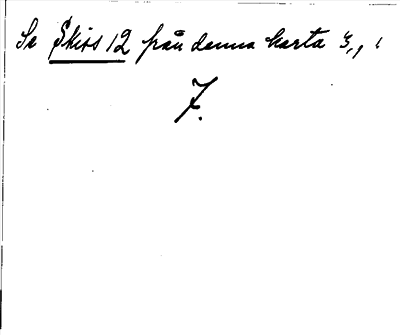 Se Skiss 12 från denna karta 3,, 1
7.